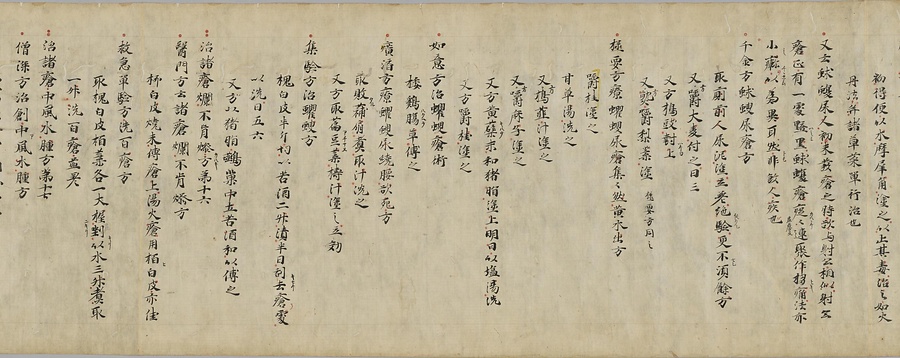 初得便以水摩犀角塗之以止其毒治之如火
丹法并諸單葉單行治也
又云蛷螋尿人初未發瘡之時欲与射公相似射公
瘡正有一處黯黑蛷螋瘡蓯〻連聚作搊痛法亦
小為異耳然非敓人疾也
千金方蛷螋尿瘡方
取廁前人尿泥塗立差絶驗更不須餘方
又方嚼大麦付之日三
又方搗豉封上
又方嚼梨葉塗 極要方同之
極要方療蠼螋尿瘡集〻敓黄水出方
嚼桂塗之
甘草湯洗之
又方搗韮汁塗之
又方嚼麻子塗之
又方黄蘗末和猪脂塗上明日以塩湯洗
又方嚼棗塗之
如意方治蠼螋瘡術
棲鷄腸草傅之
廣濟方療蠼螋尿繞腰欲死方
取敗蒲扇煮取汁洗之
又方取苣葉擣汁塗之立効
集驗方治蠼螋方
槐白皮半斤切以苦酒二升漬半日刮去瘡處
以洗日五六
又方以猪脂鷄巢中五苦酒和以傅之
治諸瘡爛不肯燥方第十六
醫門方云諸瘡爛不肯燥方
柳白皮燒末傅瘡上湯火瘡用栢白皮亦佳
救急單驗方洗百瘡方
取槐白皮栢葉各一大握剉以水三升煮取
一升洗百瘡並差
治諸瘡中風水腫方第十七
僧深方治創中風水腫方